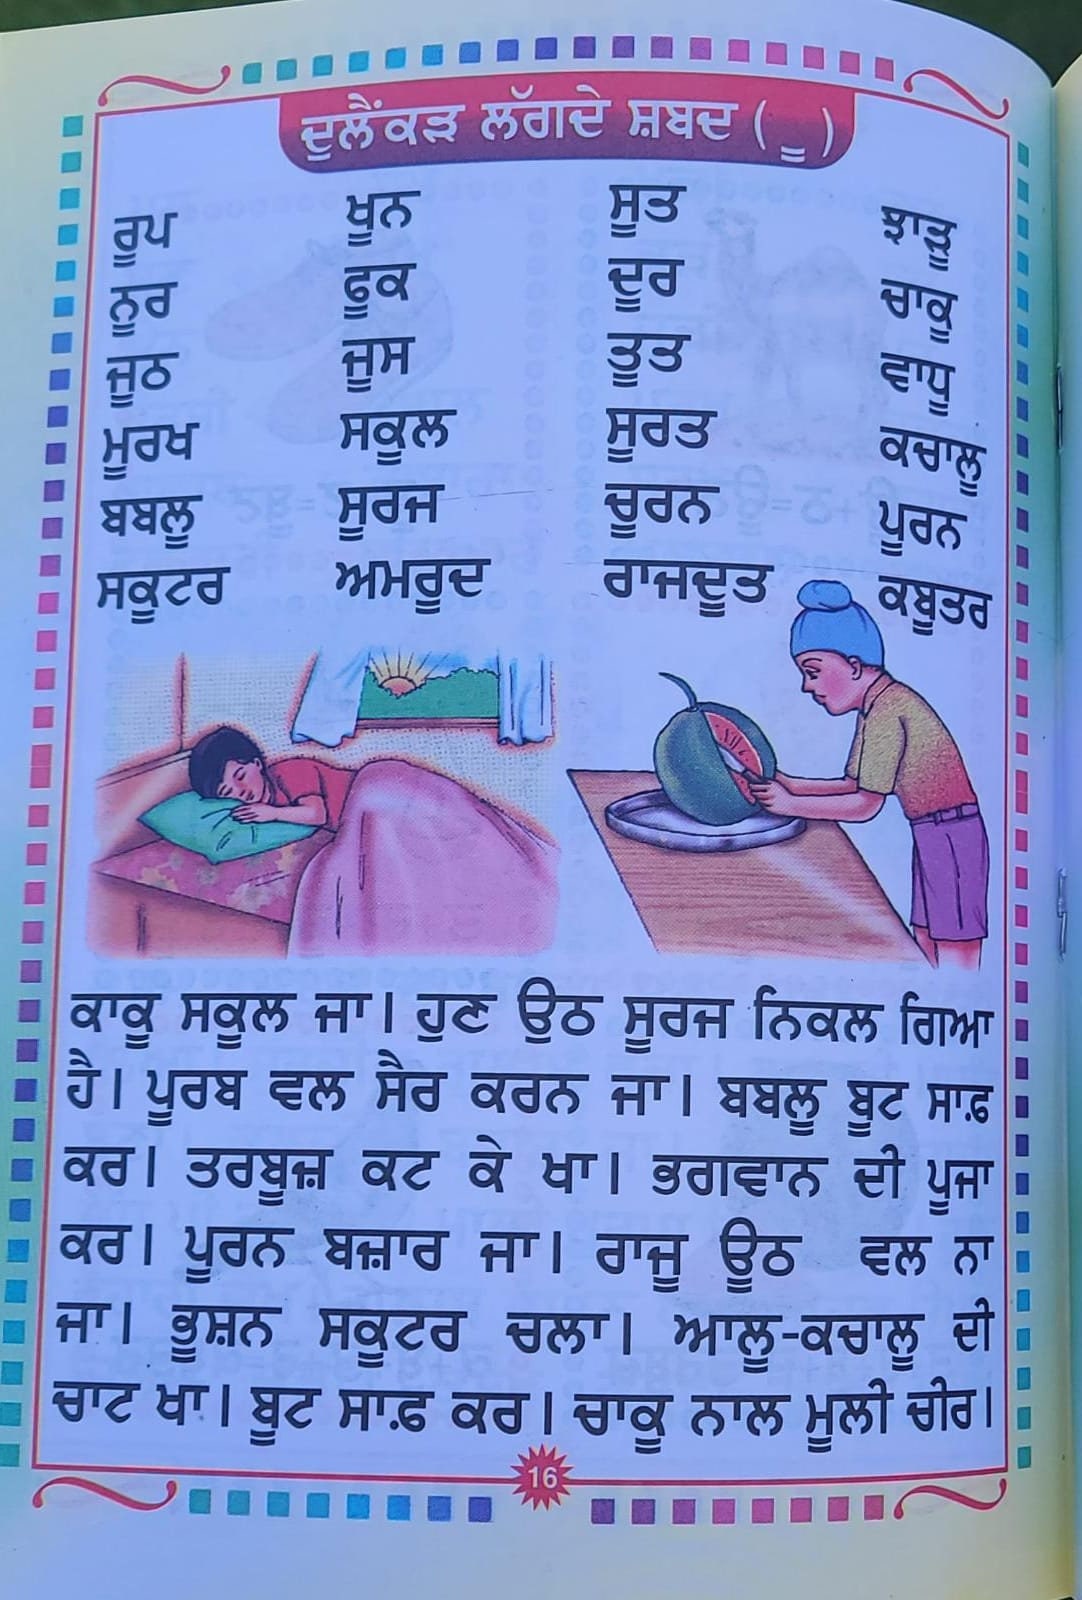 ਦੁਲੈਂਕੜ ਲੱਗਦੇ ਸ਼ਬਦ ( ੂ )
ਰੂਪ ਖੂਨ ਸੂਤ ਝਾੜੂ
ਨੂਰ ਫੂਕ ਦੂਰ ਚਾਕੂ
ਜੂਠ ਜੂਸ ਤੂਤ ਵਾਧੂ
ਮੂਰਖ ਸਕੂਲ ਸੂਰਤ ਕਚਾਲੂ
ਬਬਲੂ ਸੂਰਜ ਚੂਰਨ ਪੂਰਨ
ਸਕੂਟਰ ਅਮਰੂਦ ਰਾਜਦੂਤ ਕਬੂਤਰ
ਕਾਕੂ ਸਕੂਲ ਜਾ। ਹੁਣ ਉਠ ਸੂਰਜ ਨਿਕਲ ਗਿਆ
ਹੈ। ਪੂਰਬ ਵਲ ਸੈਰ ਕਰਨ ਜਾ। ਬਬਲੂ ਬੂਟ ਸਾਫ਼
ਕਰ। ਤਰਬੂਜ਼ ਕਟ ਕੇ ਖਾ। ਭਗਵਾਨ ਦੀ ਪੂਜਾ
ਕਰ। ਪੂਰਨ ਬਜ਼ਾਰ ਜਾ। ਰਾਜੂ ਊਠ ਵਲ ਨਾ
ਜਾ। ਭੂਸ਼ਨ ਸਕੂਟਰ ਚਲਾ। ਆਲੂ-ਕਚਾਲੂ ਦੀ
ਚਾਟ ਖਾ। ਬੂਟ ਸਾਫ਼ ਕਰ। ਚਾਕੂ ਨਾਲ ਮੂਲੀ ਚੀਰ।
16